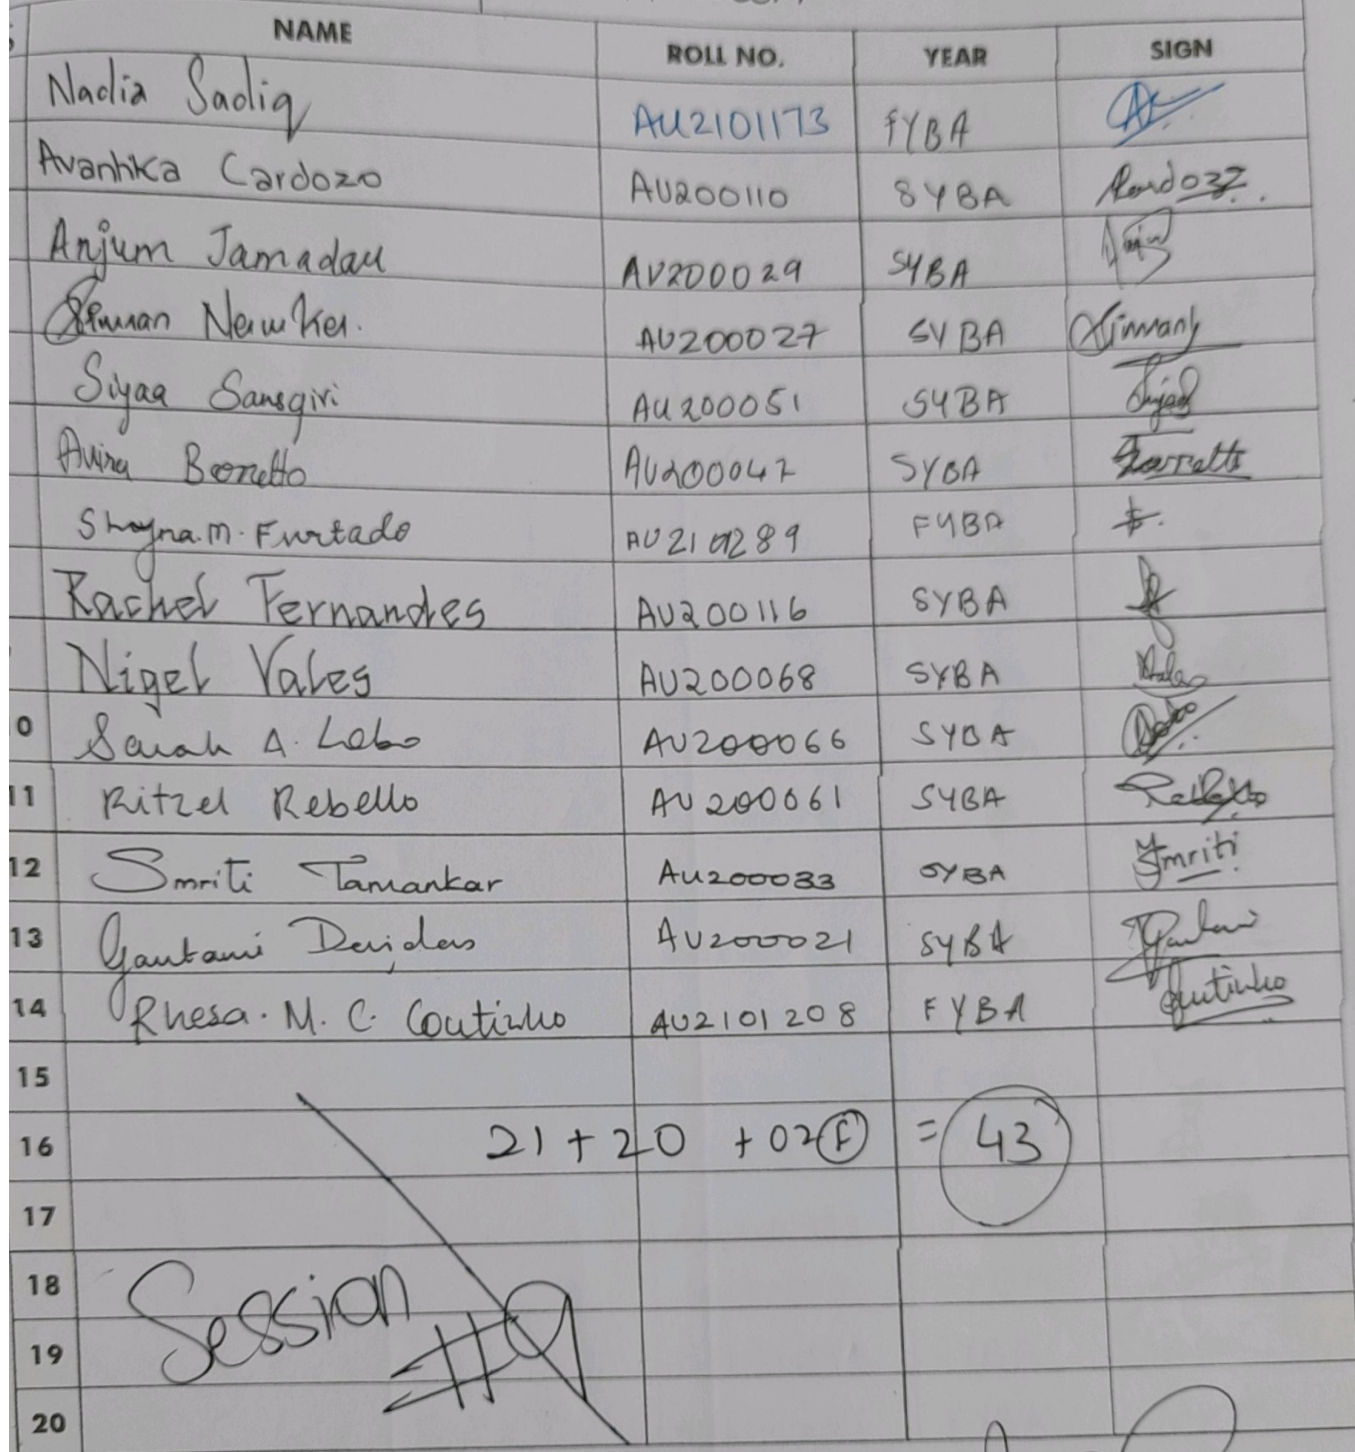 NAME ROLL NO. YEAR SIGN
Nadia Sadiq AU2101173 FYBA
Avanhka Cardozo AU200110 SYBA
Anjum Jamadar AU200029 SYBA
Newker. AU200027 SYBA
Siyaa Sansgiri AU200051 SYBA
Avina Barretto AU200047 SYBA Barretto
Shayna.M. Furtado FYBA
Rachel Fernandes AU200116 SYBA
Nigel Vales AU200068 SYBA
10 Sarah A. Lobo AU200066 SYBA
11 Ritzel Rebello AU200061 SYBA Rebello
12 Smriti Tamankar AU200033 SYBA Smriti
13 Gautami Davidas AU200021 SYBA Gautami
14 Rhesa. M. C. Coutinho AU2101208 FYBA Coutinho
15
16 21 + 20 + 02 F = 43
17
18 Session
19 #9
20